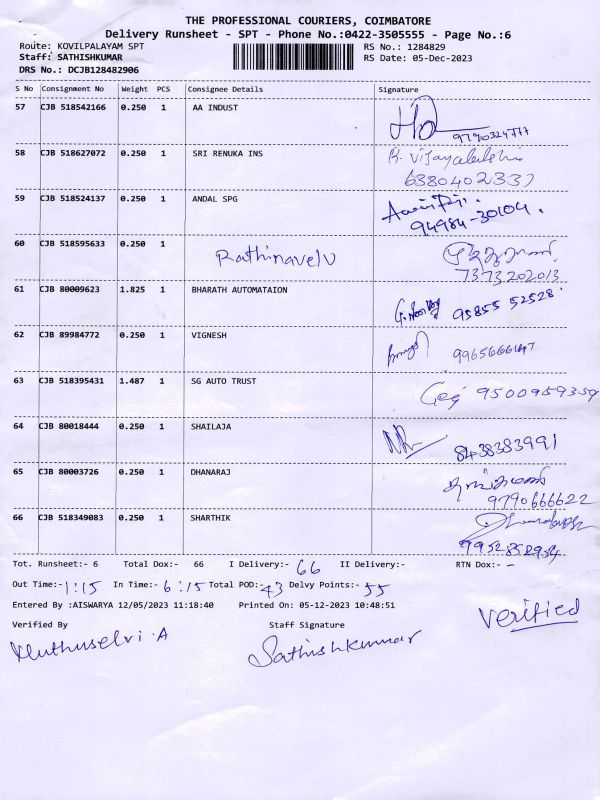 THE PROFESSIONAL COURIERS, COIMBATORE
Delivery Runsheet - SPT - Phone No.:0422-3505555 - Page No.:6
Route: KOVILPALAYAM SPT RS No.: 1284829
Staff: SATHISHKUMAR RS Date: 05-Dec-2023
DRS No.: DCJB128482906
S No Consignment No Weight PCS Consignee Details Signature
57 CJB 518542166 0.250 1 AA INDUST
58 CJB 518627072 0.250 1 SRI RENUKA INS
R. Vijayalakshmi
6380402337
59 CJB 518524137 0.250 1 ANDAL SPG
94984-30104.
60 CJB 518595633 0.250 1
Rathinavelu
7373202013
61 CJB 80009623 1.825 1 BHARATH AUTOMATAION
95855 52528
62 CJB 89984772 0.250 1 VIGNESH
63 CJB 518395431 1.487 1 SG AUTO TRUST
9500959359
64 CJB 80018444 0.250 1 SHAILAJA
8438383991
65 CJB 80003726 0.250 1 DHANARAJ
9790666622
66 CJB 518349083 0.250 1 SHARTHIK
Tot. Runsheet:- 6 Total Dox:- 66 I Delivery:- 66 II Delivery:- RTN Dox:- -
Out Time:- 1:15 In Time:- 6:15 Total POD:- 43 Delvy Points:- 55
Entered By :AISWARYA 12/05/2023 11:18:40 Printed On: 05-12-2023 10:48:51
Verified
Verified By Staff Signature
Muthuselvi.A Sathishkumar